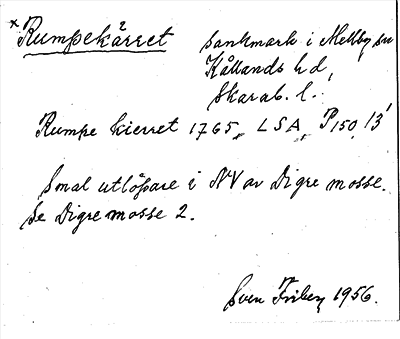 *Rumpekärret² sankmark i Mellby sn
Kållands hd,
Skarab. l.
Rumpe kierret 1765, LSA, P150, 13¹
Smal utlöpare i NV av Digre mosse.
Se Digre mosse 2.
Sven Friberg 1956.